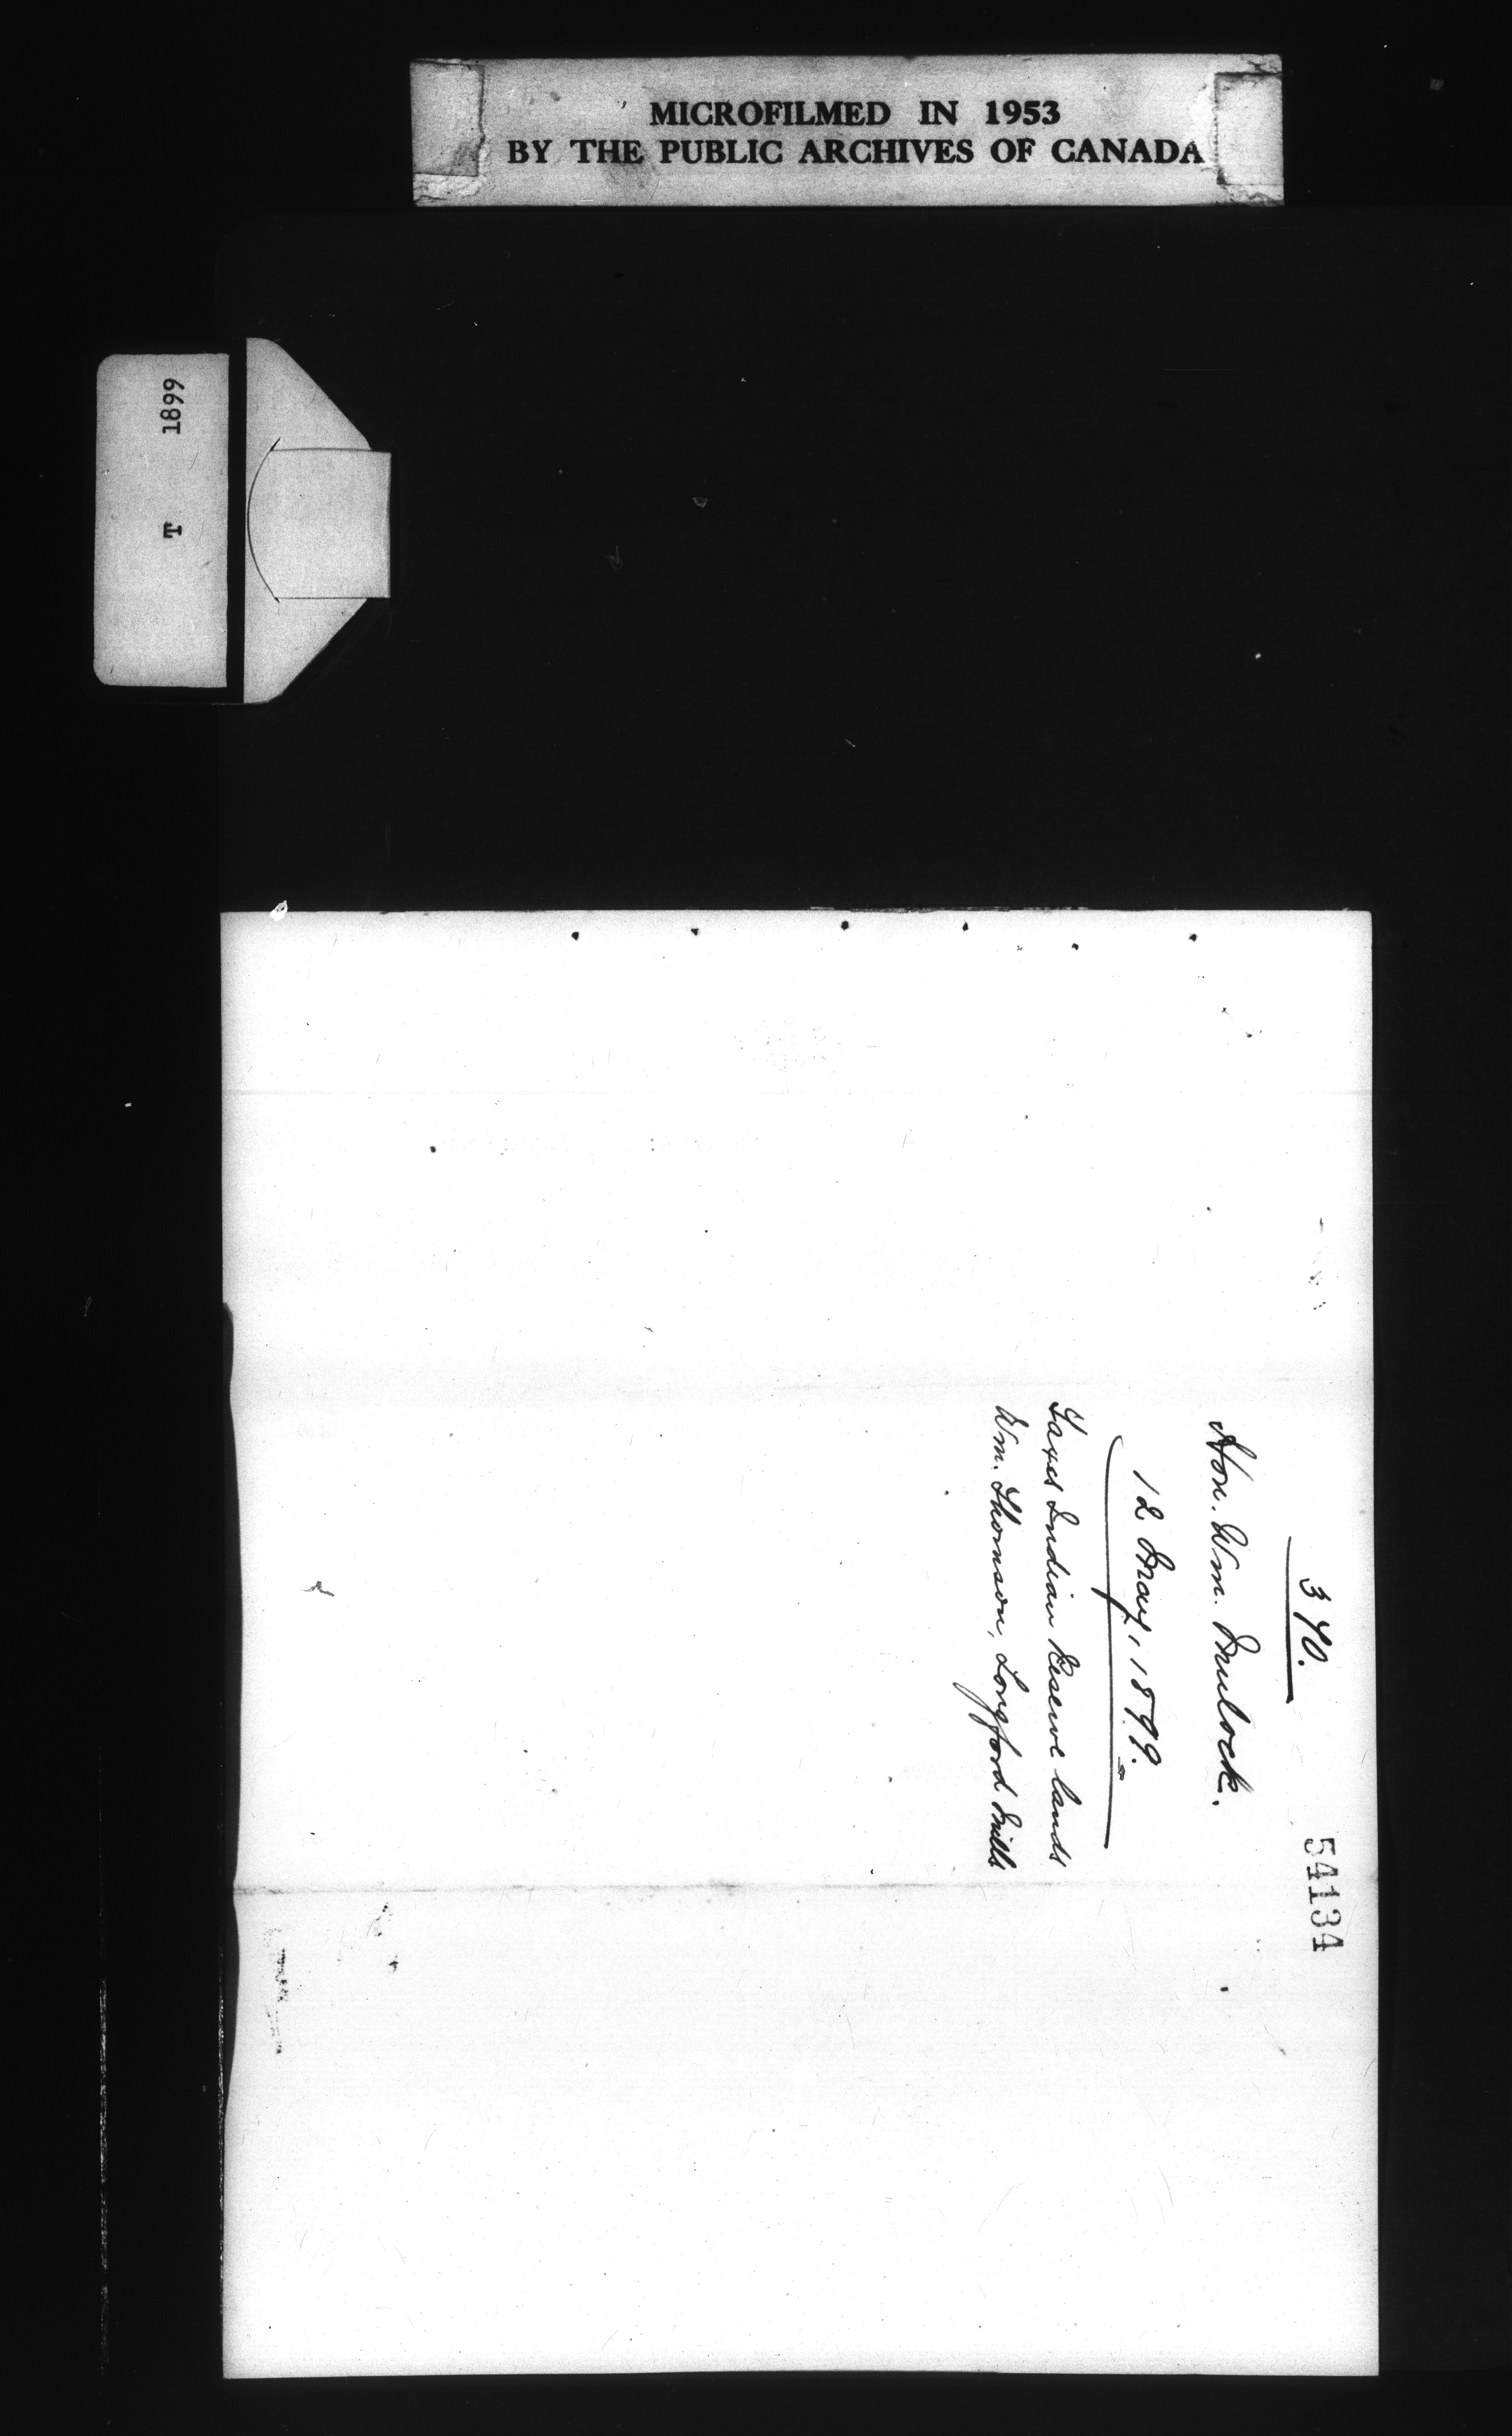 MICROFILMED IN 1953
BY THE PUBLIC ARCHIVES OF CANADA
T 1899
340.
54134
Hon. Wm. Mulock.
12 May, 1899.
Taxes Indian Reserve lands
Wm. Thomson, Longford Mills